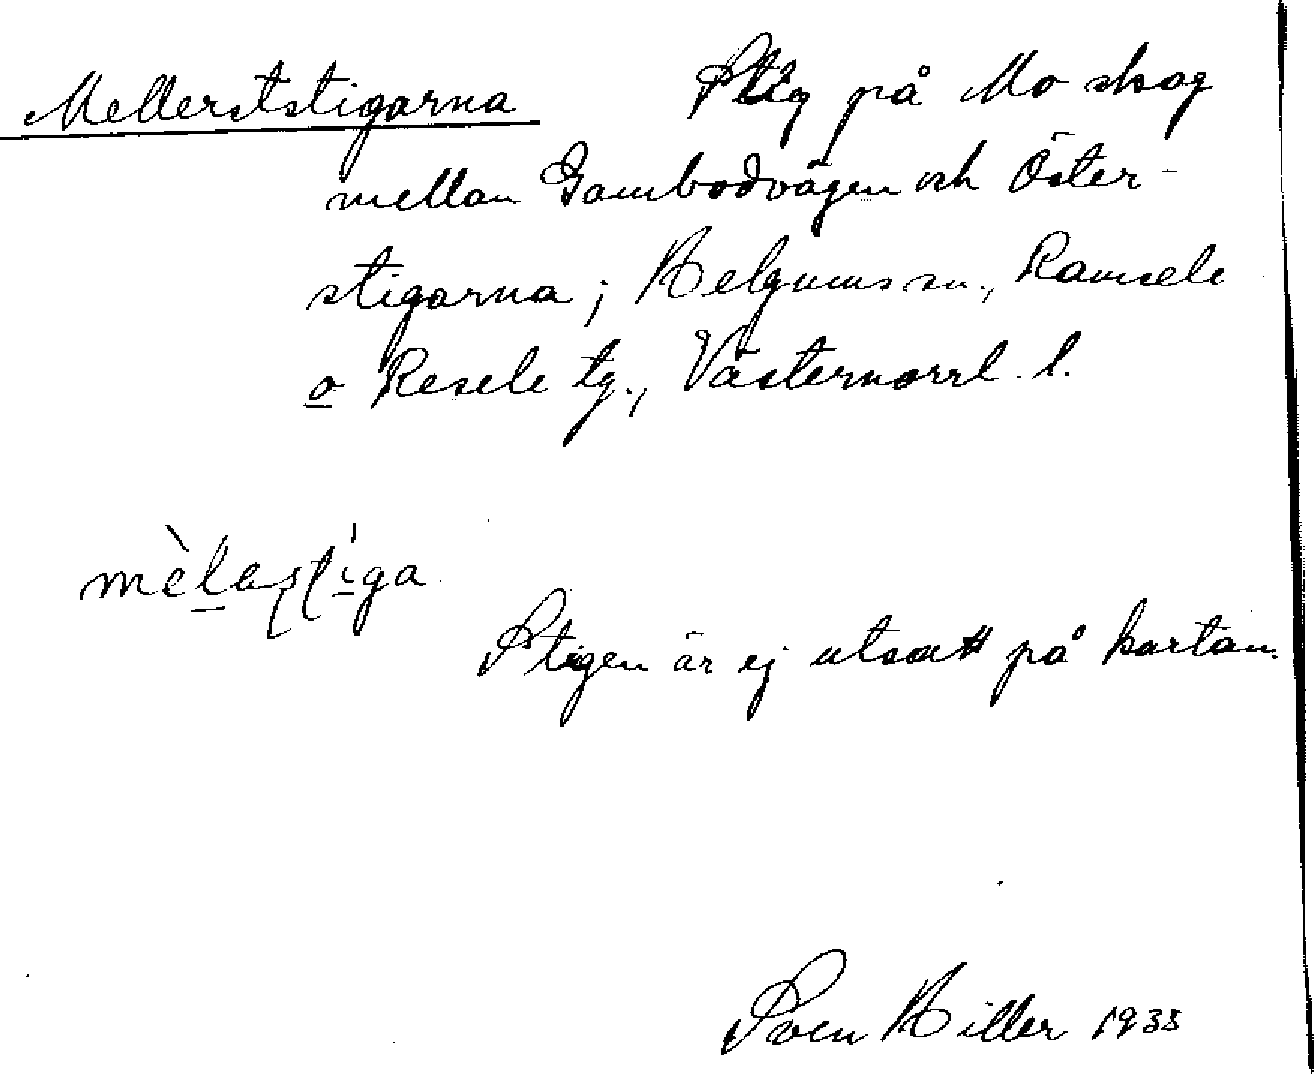 Mellerststigarna Stig på Mo skog
mellan Gambodvägen och Öster-
stigarna; Helgums sn., Ramsele
o Resele tg., Västernorrl. l.
Stigen är ej utsatt på kartan.
Sven Hiller 1933